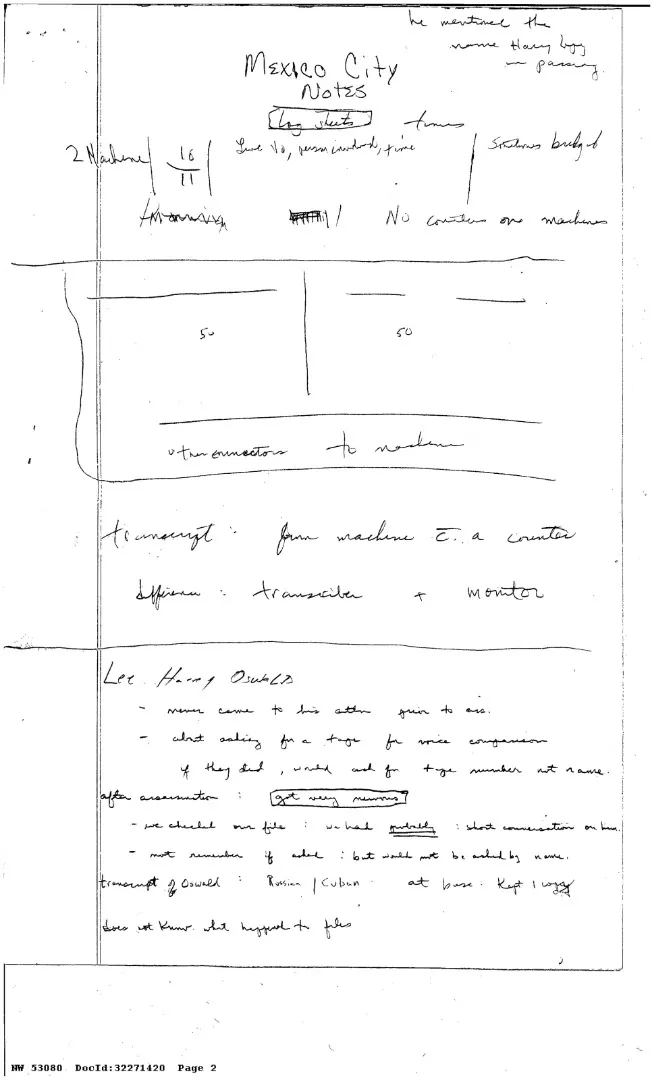 he mentioned the
name Harry
in passing.
Mexico City
Notes
Log sheets times
2 Machine 16 Line No, person involved, time Sometimes
11
No counters one machines
50 50
other connectors to machine
transcript : from machine c. a counter
difference : transcriber + monitor
Lee Harvey Oswald
- never came to his attn prior to ass.
- about asking for a tape for voice comparison
if they did, would ask for tape number not name.
after assassination : got very nervous
- we checked our file : we had probably : short conversation on him.
- not remember if asked : but would not be asked by name.
transcript of Oswald : Russian / Cuban - at base. Kept 1 copy
does not know what happened to files
NW 53080 DocId:32271420 Page 2